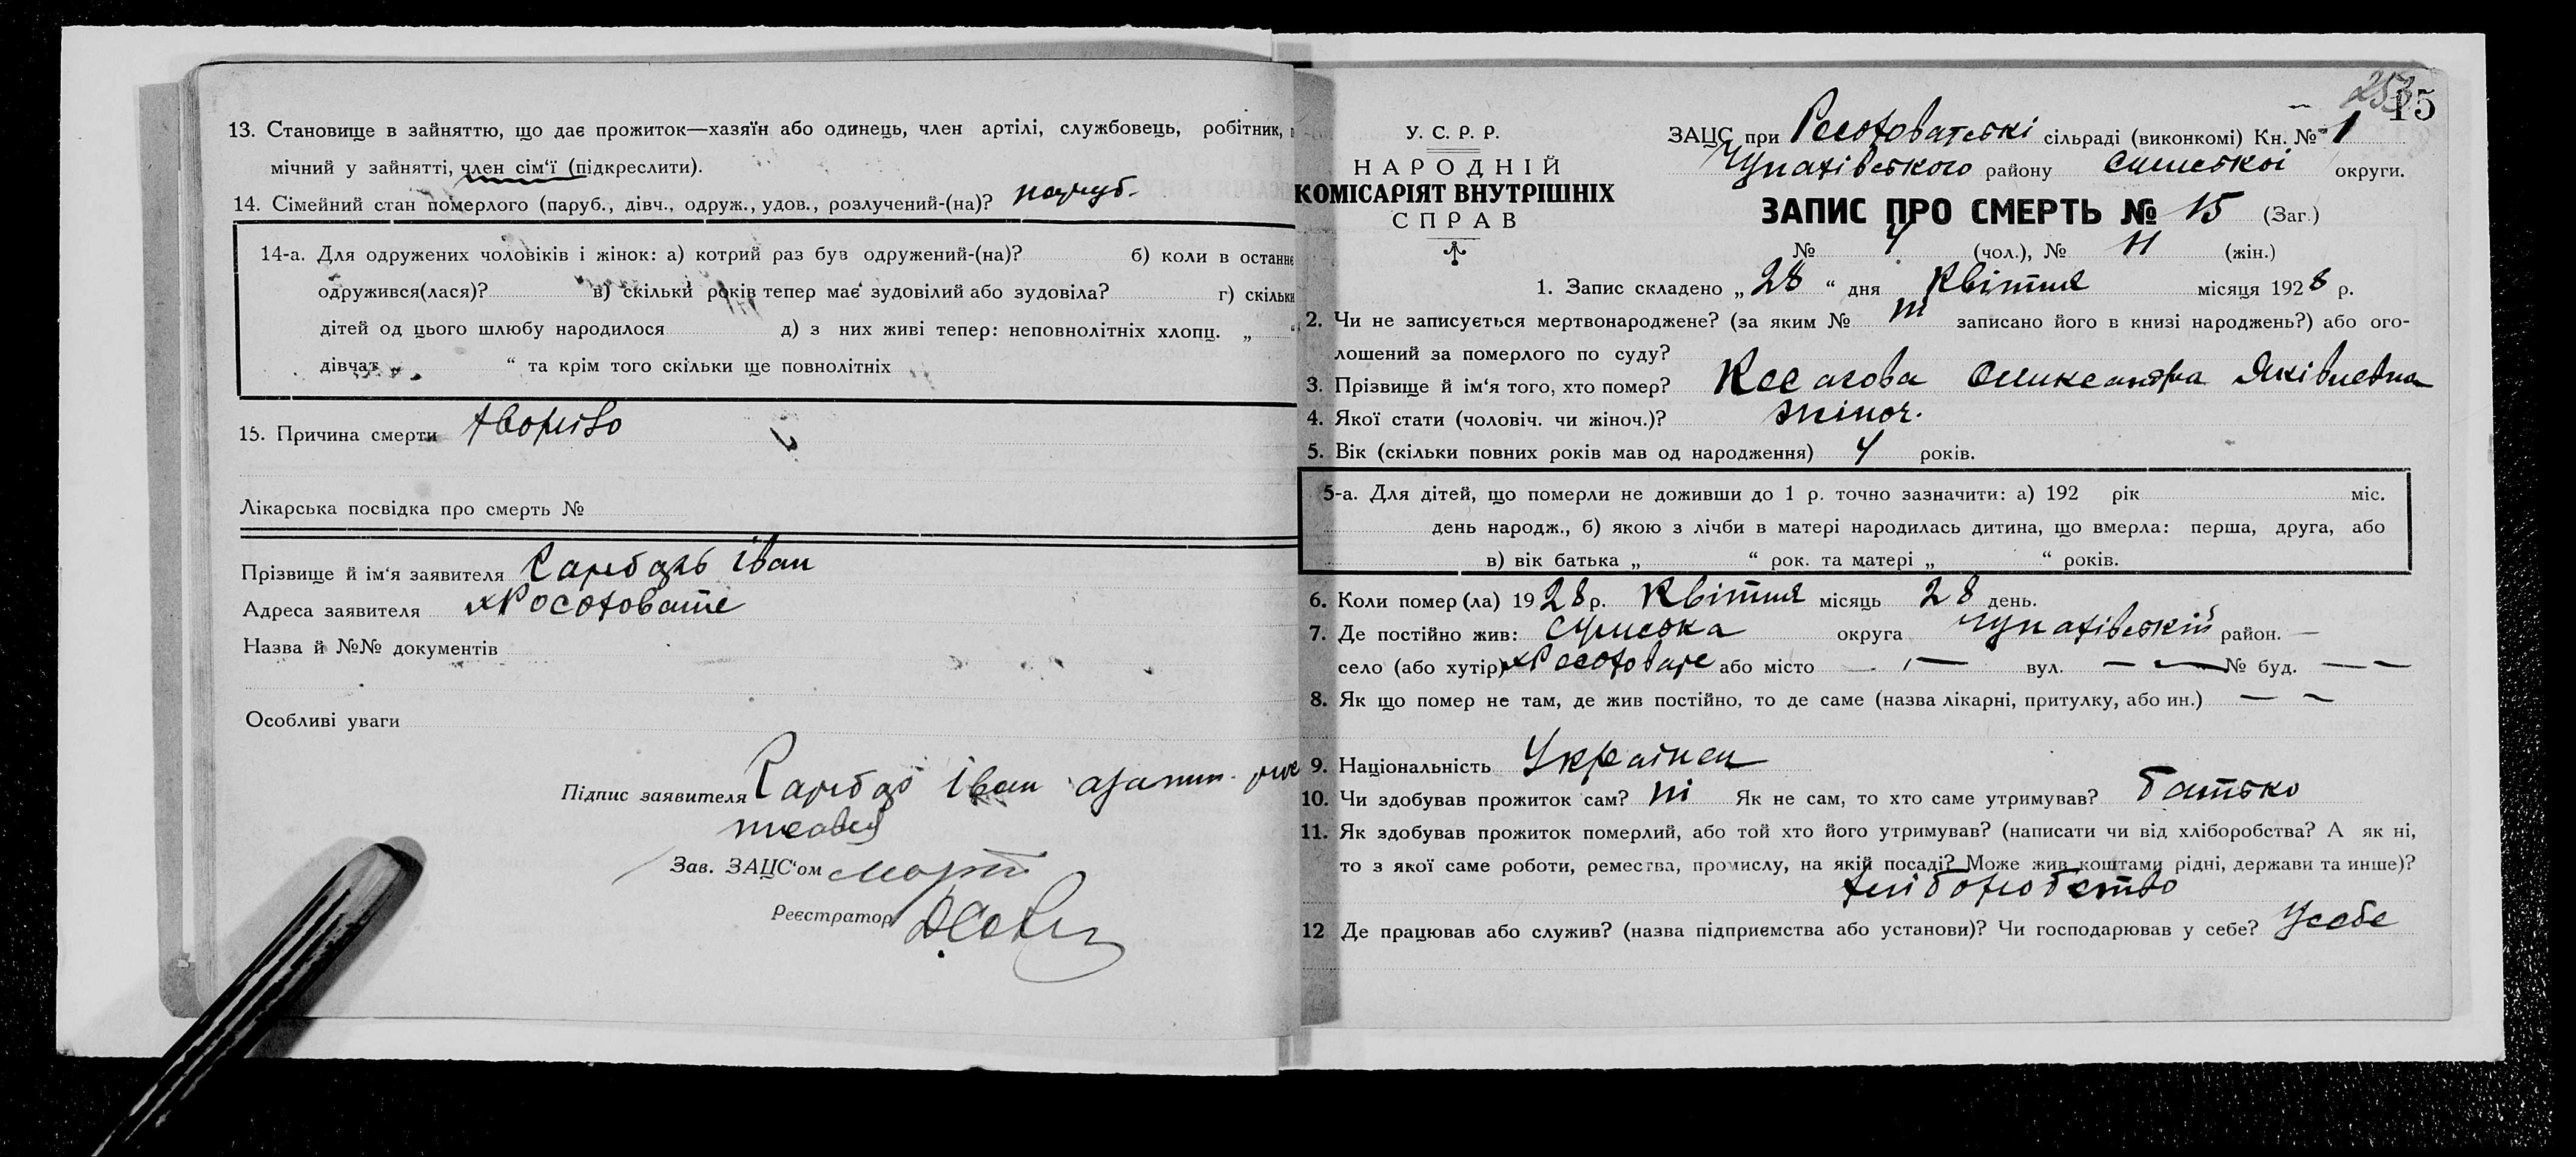 13. Становище в зайняттю, що дає прожиток—хазяїн або одинець, член артілі, службовець, робітник,
мічний у зайнятті, член сім'ї (підкреслити).
14. Сімейний стан померлого (паруб., дівч., одруж., удов., розлучений-(на)? паруб.
14-а. Для одружених чоловіків і жінок: а) котрий раз був одружений-(на)? б) коли в останнє
одружився(лася)? в) скільки років тепер має зудовілий або зудовіла? г) скільки
дітей од цього шлюбу народилося д) з них живі тепер: неповнолітніх хлопц. „ “
дівчат „ “ та крім того скільки ще повнолітніх
15. Причина смерти
Лікарська посвідка про смерть №
Прізвище й ім'я заявителя Іван
Адреса заявителя
Назва й №№ документів
Особливі уваги
Підпис заявителя Іван
Зав. ЗАЦС'ом
Реєстратор
253
15
У. С. Р. Р.
НАРОДНІЙ
КОМІСАРІЯТ ВНУТРІШНІХ
СПРАВ
ЗАЦС при сільраді (виконкомі) Кн. № 1
Чупахівського району Сумської округи.
ЗАПИС ПРО СМЕРТЬ № 15 (Заг.)
№ 4 (чол.), № 11 (жін.)
1. Запис складено „ 28 “ дня Квітня місяця 1928 р.
2. Чи не записується мертвонароджене? (за яким № записано його в книзі народжень?) або ого-
лошений за померлого по суду?
3. Прізвище й ім'я того, хто помер? Олександра Яківлевна
4. Якої стати (чоловіч. чи жіноч.)? жіноч.
5. Вік (скільки повних років мав од народження) 4 років.
5-а. Для дітей, що померли не доживши до 1 р. точно зазначити: а) 192 рік міс.
день народж., б) якою з лічби в матері народилась дитина, що вмерла: перша, друга, або
в) вік батька „ “ рок. та матері „ “ років.
6. Коли помер(ла) 1928 р. Квітня місяць 28 день.
7. Де постійно жив: Сумська округа Чупахівській район. —
село (або хутір) або місто — вул. — № буд. —
8. Як що помер не там, де жив постійно, то де саме (назва лікарні, притулку, або ин.) — —
9. Національність Українец
10. Чи здобував прожиток сам? ні Як не сам, то хто саме утримував? батько
11. Як здобував прожиток померлий, або той хто його утримував? (написати чи від хліборобства? А як ні,
то з якої саме роботи, ремества, промислу, на якій посаді? Може жив коштами рідні, держави та инше)?
хліборобство
12 Де працював або служив? (назва підприємства або установи)? Чи господарював у себе? У себе